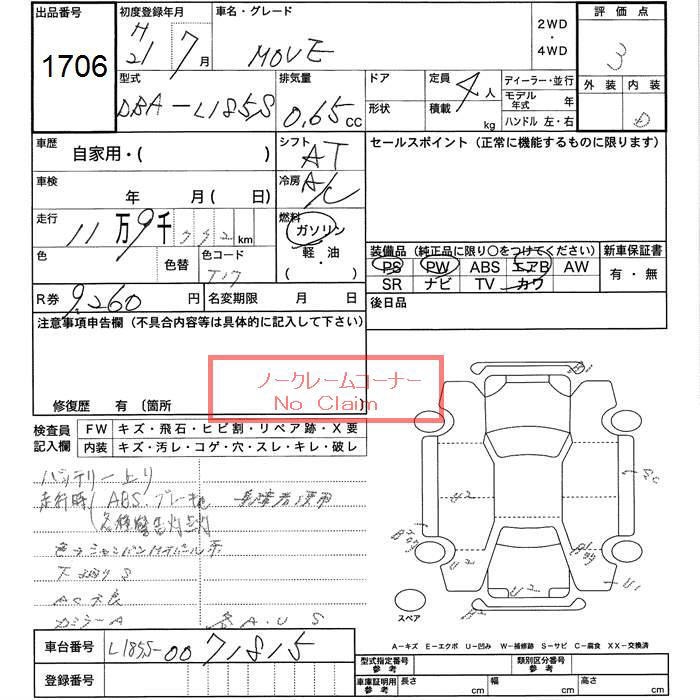 出品番号 初度登録年月 車名・グレード 2WD ・ 4WD 評価点
1706 H 21 7月 MOVE 3
外装 内装
型式 排気量 ドア 定員 4人 ディーラー・並行
DBA-L185S 0.65cc 形状 積載 kg モデル年式 年
ハンドル 左・右 D
車歴 自家用・( ) シフト AT セールスポイント(正常に機能するものに限ります)
車検 年 月(日) 冷房 A/C
走行 11万9千792km 燃料 ガソリン
軽・油
( )
色 色替 色コード T17
装備品(純正品に限り〇をつけてください) 新車保証書
PS PW ABS エアB AW 有・無
SR ナビ TV カワ
R券 9,260円 名変期限 月 日 後日品
注意事項申告欄(不具合内容等は具体的に記入して下さい)
ノークレームコーナー
No Claim
修復歴 有〔箇所 〕
検査員記入欄 FW キズ・飛石・ヒビ割・リペア跡・X要
内装 キズ・汚レ・コゲ・穴・スレ・キレ・破レ
バッテリー上り
走行時 ABS、ブレーキ
各種警告灯点灯
色ラシャンパンMオパール系
下廻りS
AC不良
ガラーA 各A.U S
U2
U2
U2
U1
スペア
A−キズ E−エクボ U−凹み W−補修跡 S−サビ C−腐食 XX−交換済
車台番号 L185S-0071815
登録番号
型式指定番号 参考 類別区分番号 参考
車庫証明用 参考 長さ cm 幅 cm 高さ cm